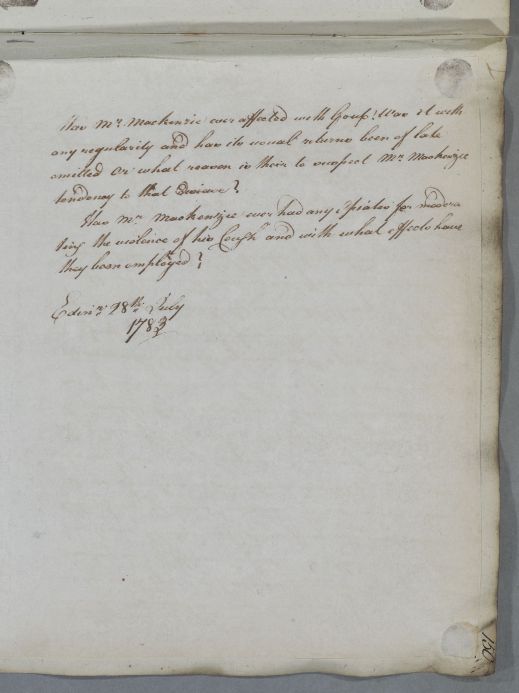 Was Mr. Mackenzie ever affected with Gout? Was it with
any regularity and has its usual returns been of late
omitted or what reason is their to suspect Mr. Mackenzie
tendency to that Disease?
Has Mr. Mackenzie ever had any opiates for modera
ting the violence of his Cough and with what effects have
they been employed?
Edinr. 18th July
1783
150